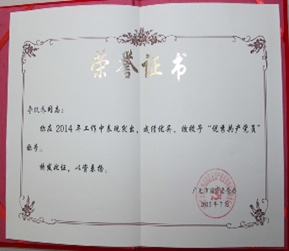 荣誉证书
同志:
你在2014年工作中表现突出,成绩优异,被授予“优秀共产党员”
称号。
特发此证,以资表扬。
2015年7月